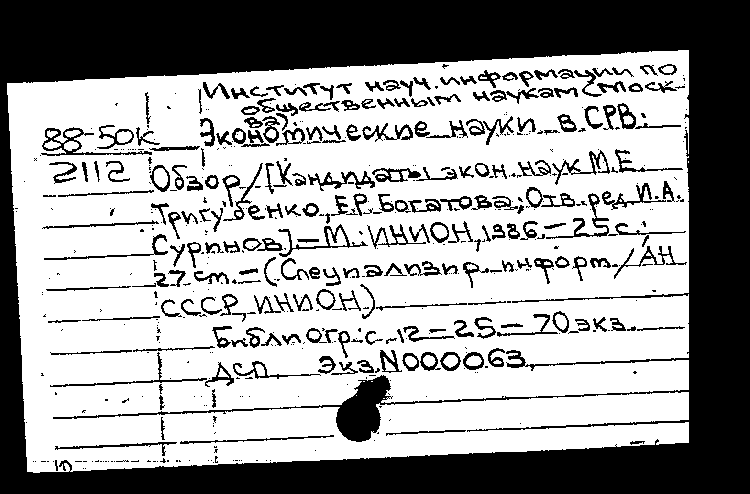 Институт науч. информации по
общественным наукам (Моск-
ва).
88-50к Экономические науки в СРВ:
2112 Обзор/[Кандидаты экон. наук М.Е.
Тригубенко, Е.Р. Богатова; Отв. ред. И.А.
Суринов].—М.: ИНИОН, 1986.—25с.;
27 см.—(Специализир. информ./АН
СССР, ИНИОН).
Библиогр.: с. 12—25.—70 экз.
ДСП Экз. N000063.